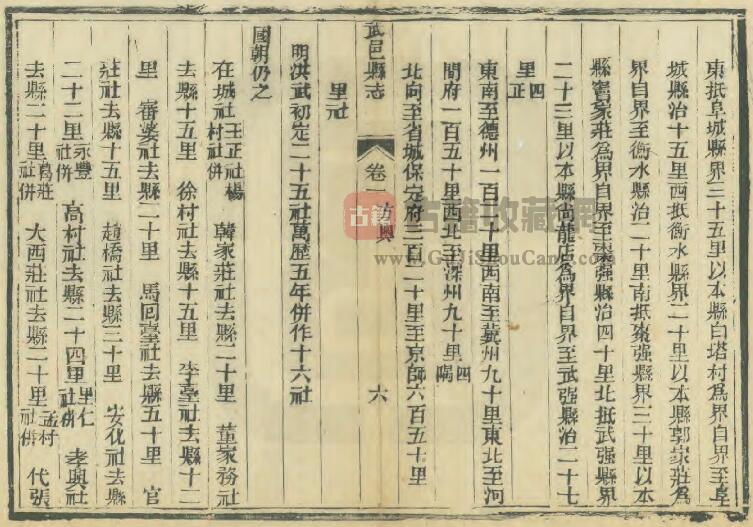 東抵阜城縣界三十五里以本縣白塔村爲界自界至阜
城縣治十五里西抵衡水縣界二十里以本縣郭家莊爲
界自界至衡水縣治二十里南抵棗强縣界三十里以本
縣竇家莊爲界自界至棗强縣治四十里北抵武强縣界
二十三里以本縣尚龍店爲界自界至武强縣治二十七
里 四正
東南至德州一百二十里西南至冀州九十里東北至河
間府一百五十里西北至深州九十里 四隅
北向至省城保定府三百二十里至京師六百五十里
武邑縣志 卷一 方輿 六
里社
明洪武初定二十五社萬歷五年併作十六社
國朝仍之
在城社 王正社楊村社併 韓家莊社去縣二十里 董家務社
去縣十五里 徐村社去縣十五里 李臺社去縣十二
里 審婆社去縣二十里 馬回臺社去縣五十里 官
莊社去縣十五里 趙橋社去縣三十里 安化社去縣
二十二里 永豐社併 高村社去縣二十四里 里仁社併 孝輿社
去縣二十里 萬莊社併 大西莊社去縣二十里 孟村社併 代張
古籍 古籍收藏网
www.GuJiShouCang.com